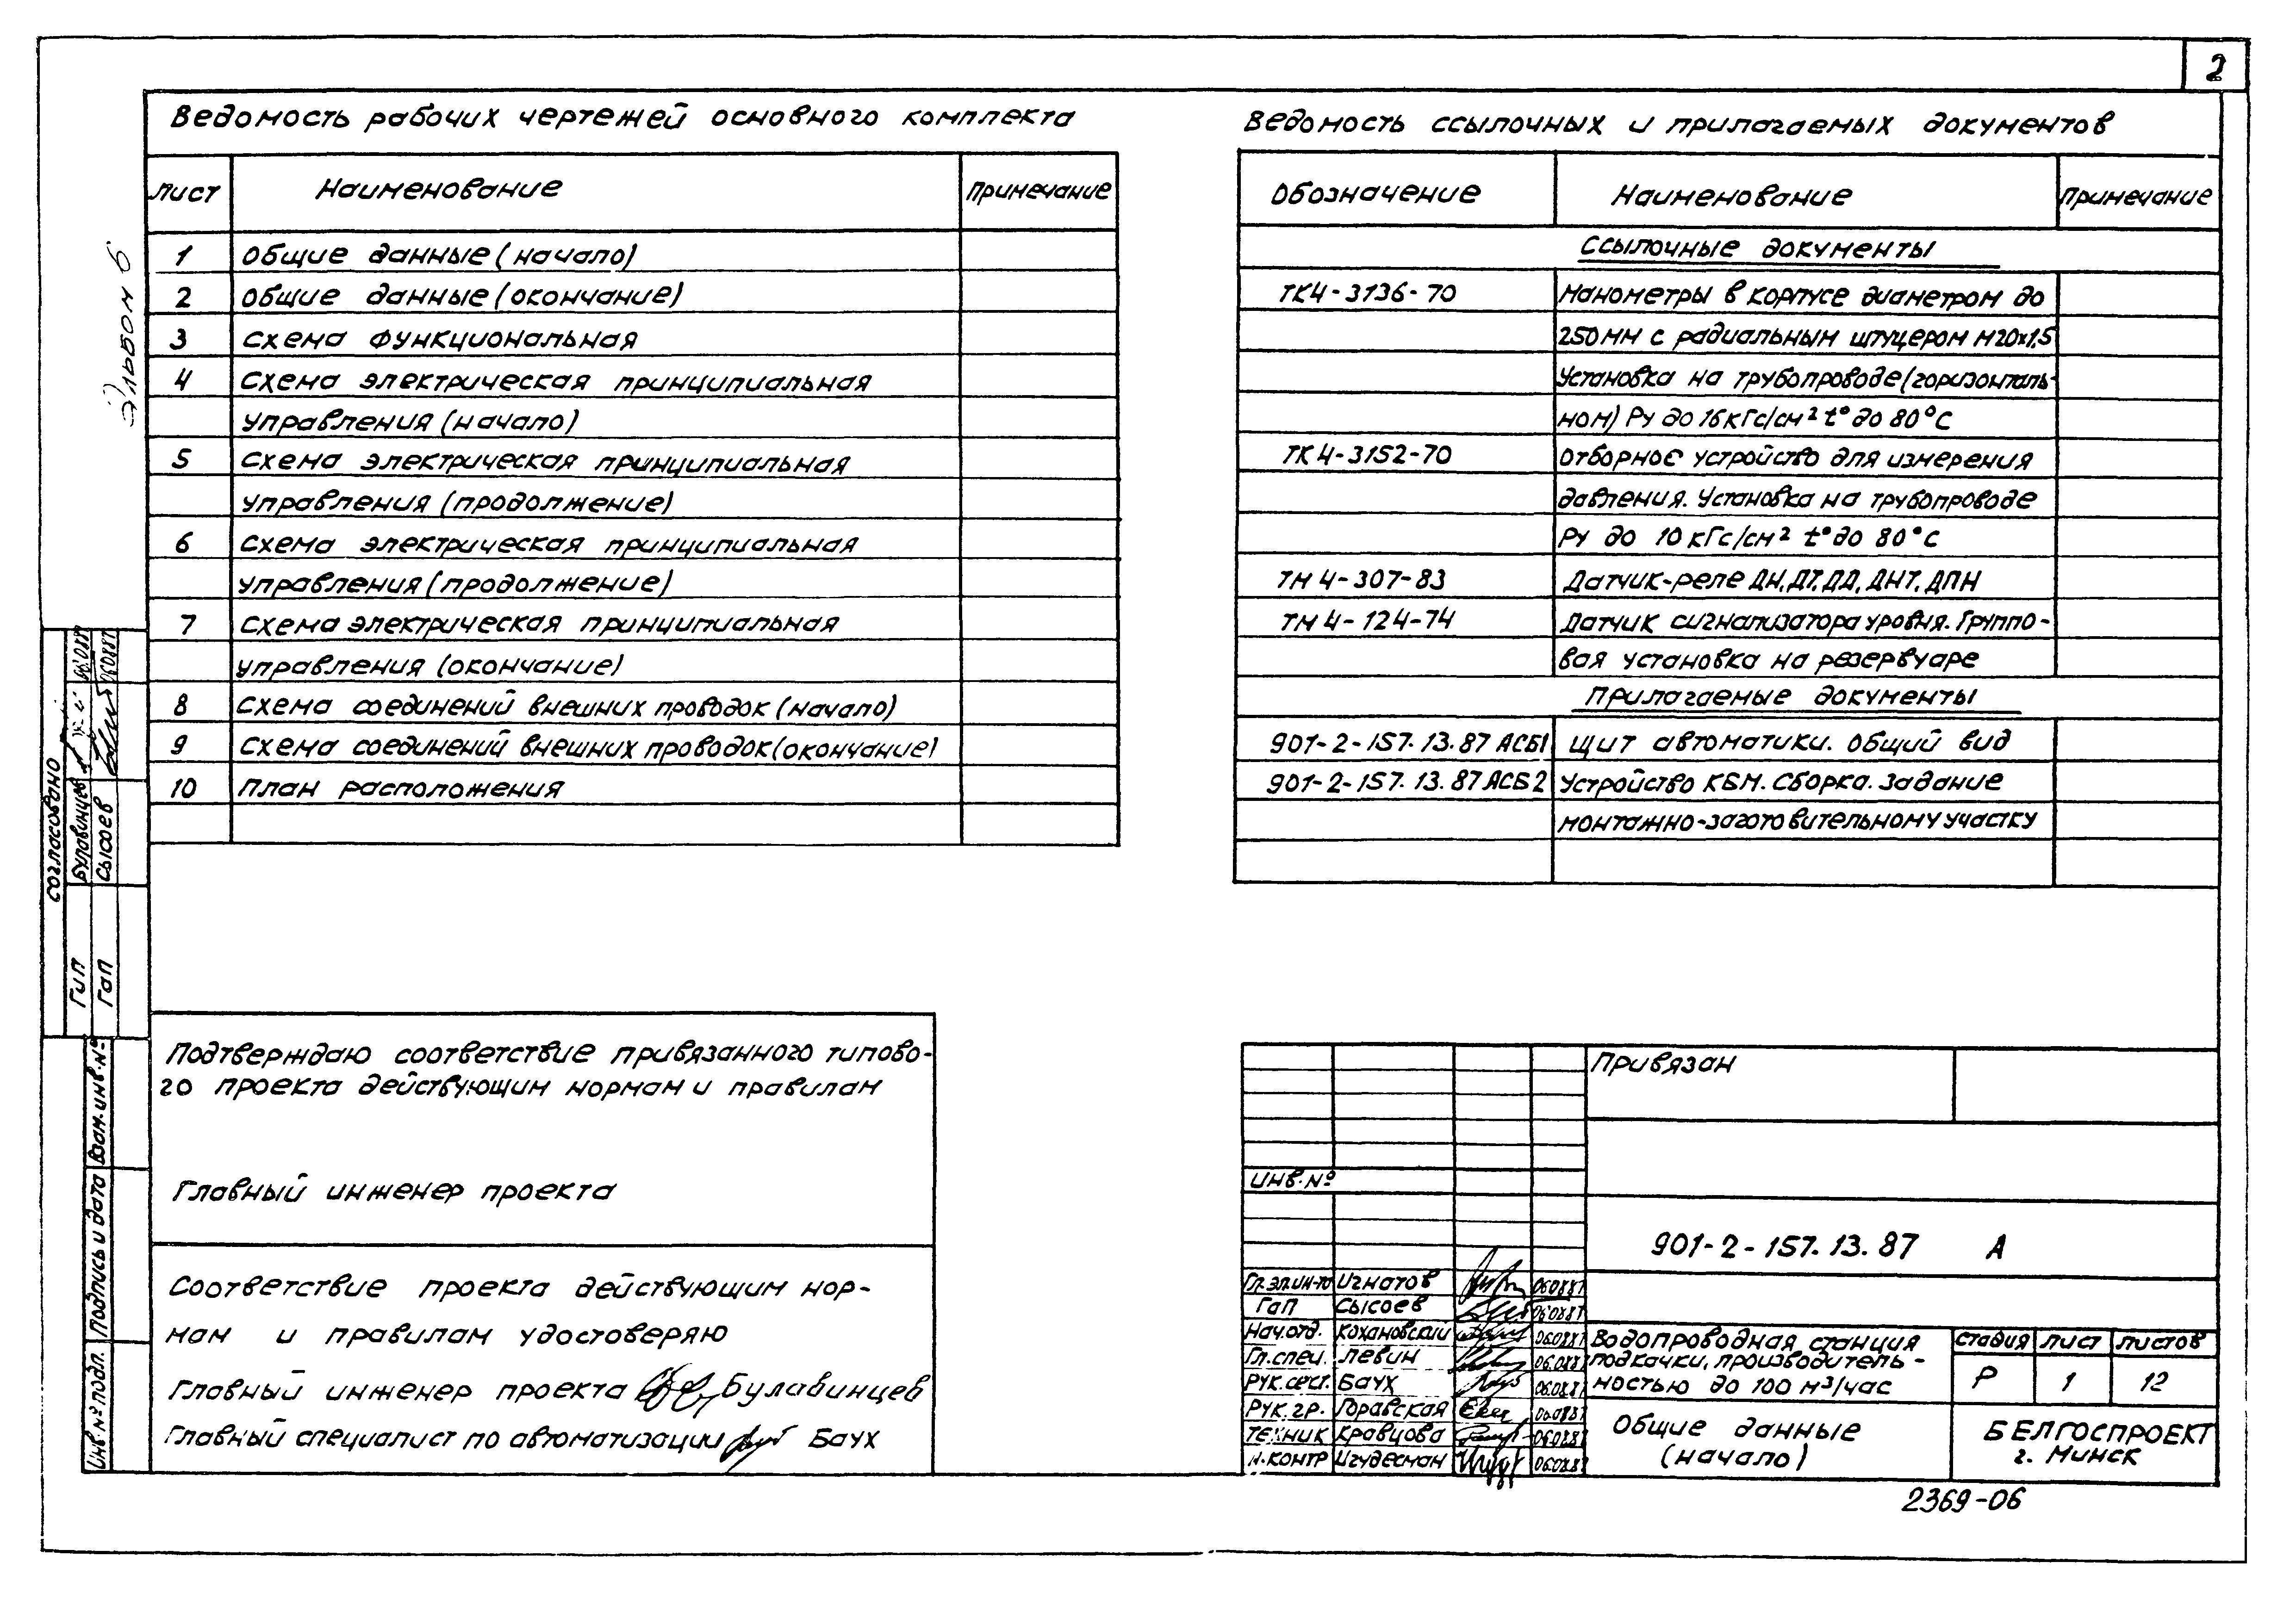 2
Ведомость рабочих чертежей основного комплекта
Лист Наименование Примечание
1 Общие данные (начало)
2 Общие данные (окончание)
3 Схема функциональная
4 Схема электрическая принципиальная
управления (начало)
5 Схема электрическая принципиальная
управления (продолжение)
6 Схема электрическая принципиальная
управления (продолжение)
7 Схема электрическая принципиальная
управления (окончание)
8 Схема соединений внешних проводок (начало)
9 Схема соединений внешних проводок (окончание)
10 План расположения
Ведомость ссылочных и прилагаемых документов
Обозначение Наименование Примечание
Ссылочные документы
ТК4-3136-70 Манометры в корпусе диаметром до
250мм с радиальным штуцером М20х1,5
Установка на трубопроводе (горизонталь-
ном) Ру до 16 кГс/см² t° до 80°С
ТК4-3152-70 Отборное устройство для измерения
давления. Установка на трубопроводе
Ру до 10 кГс/см² t° до 80°С
ТМ4-307-83 Датчик-реле ДН, ДТ, ДД, ДНТ, ДПН
ТМ4-124-74 Датчик сигнализатора уровня. Группо-
вая установка на резервуаре
Прилагаемые документы
901-2-157.13.87 АСБ1 Щит автоматики. Общий вид
901-2-157.13.87 АСБ2 Устройство КВМ. Сборка. Задание
монтажно-заготовительному участку
Альбом 6
Согласовано
ГИП Булавинцев 06.08.87
ГАП Сысоев 06.08.87
Взам. инв. №
Подпись и дата
Инв. № подл.
Подтверждаю соответствие привязанного типово-
го проекта действующим нормам и правилам
Главный инженер проекта
Соответствие проекта действующим нор-
мам и правилам удостоверяю
Главный инженер проекта Булавинцев
Главный специалист по автоматизации Баух
Привязан
Инв. №
901-2-157.13.87 А
Гл.эл.ин-та Игнатов 06.08.87
ГАП Сысоев 06.08.87
Нач.отд. Кохановский 06.08.87
Гл.спец. Левин 06.08.87
Рук.сект. Баух 06.08.87
Рук.гр. Горавская 06.08.87
Техник Кравцова 06.08.87
Н.контр Игудесман 06.08.87
Водопроводная станция
подкачки, производитель-
ностью до 100 м³/час
Стадия Лист Листов
Р 1 12
Общие данные
(начало)
БЕЛГОСПРОЕКТ
г. Минск
2369-06